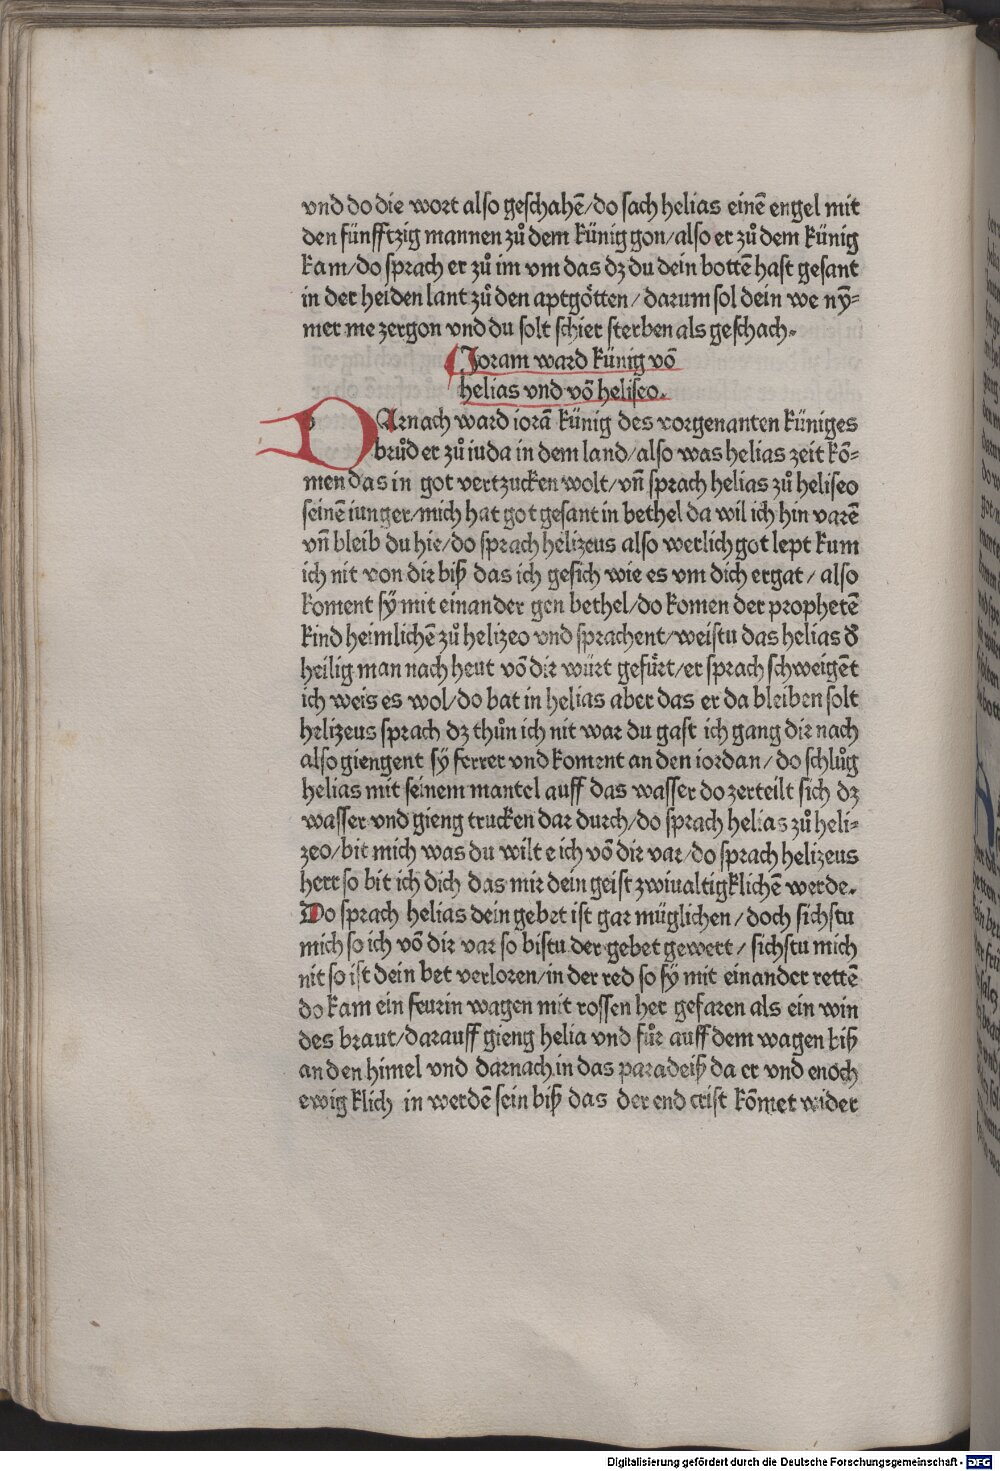 vnd do die wort also geschahē/do sach helias einē engel mit
den fünfftzig mannen zů dem künig gon/also er zů dem künig
kam/do sprach er zů im vm das dz du dein bottē hast gesant
in der heiden lant zů den aptgötten/darum sol dein we nȳ=
mer me zergon vnd du solt schier sterben als geschach.
Joram ward künig vō
helias vnd vō heliseo.
DArnach ward iorā künig des vorgenanten küniges
brůder zů iuda in dem land/also was helias zeit kō=
men das in got vertzucken wolt/vn̄ sprach helias zů heliseo
seinē iunger/mich hat got gesant in bethel da wil ich hin varē
vn̄ bleib du hie/do sprach helizeus also werlich got lept kum
ich nit von dir biß das ich gesich wie es vm dich ergat/also
koment sÿ mit einander gen bethel/do komen der prophetē
kind heimlichē zů helizeo vnd sprachent/weistu das helias d᷑
heilig man nach heut vō dir würt gefůrt/er sprach schweigēt
ich weis es wol/do bat in helias aber das er da bleiben solt
helizeus sprach dz thůn ich nit war du gast ich gang dir nach
also giengent sÿ ferrer vnd koment an den iordan/do schlůg
helias mit seinem mantel auff das wasser do zerteilt sich dz
wasser vnd gieng trucken dar durch/do sprach helias zů heli=
zeo/bit mich was du wilt e ich vō dir var/do sprach helizeus
herr so bit ich dich das mir dein geist zwiualtigklichē werde.
Do sprach helias dein gebet ist gar müglichen/doch sichstu
mich so ich vō dir var so bistu der gebet gewert/sichstu mich
nit so ist dein bet verloren/in der red so sÿ mit einander rettē
do kam ein feurin wagen mit rossen her gefaren als ein win
des braut/darauff gieng helia vnd fůr auff dem wagen biß
an den himel vnd darnach in das paradeiß da er vnd enoch
ewigklich in werdē sein biß das der end crist kōmet wider
Digitalisierung gefördert durch die Deutsche Forschungsgemeinschaft - DFG